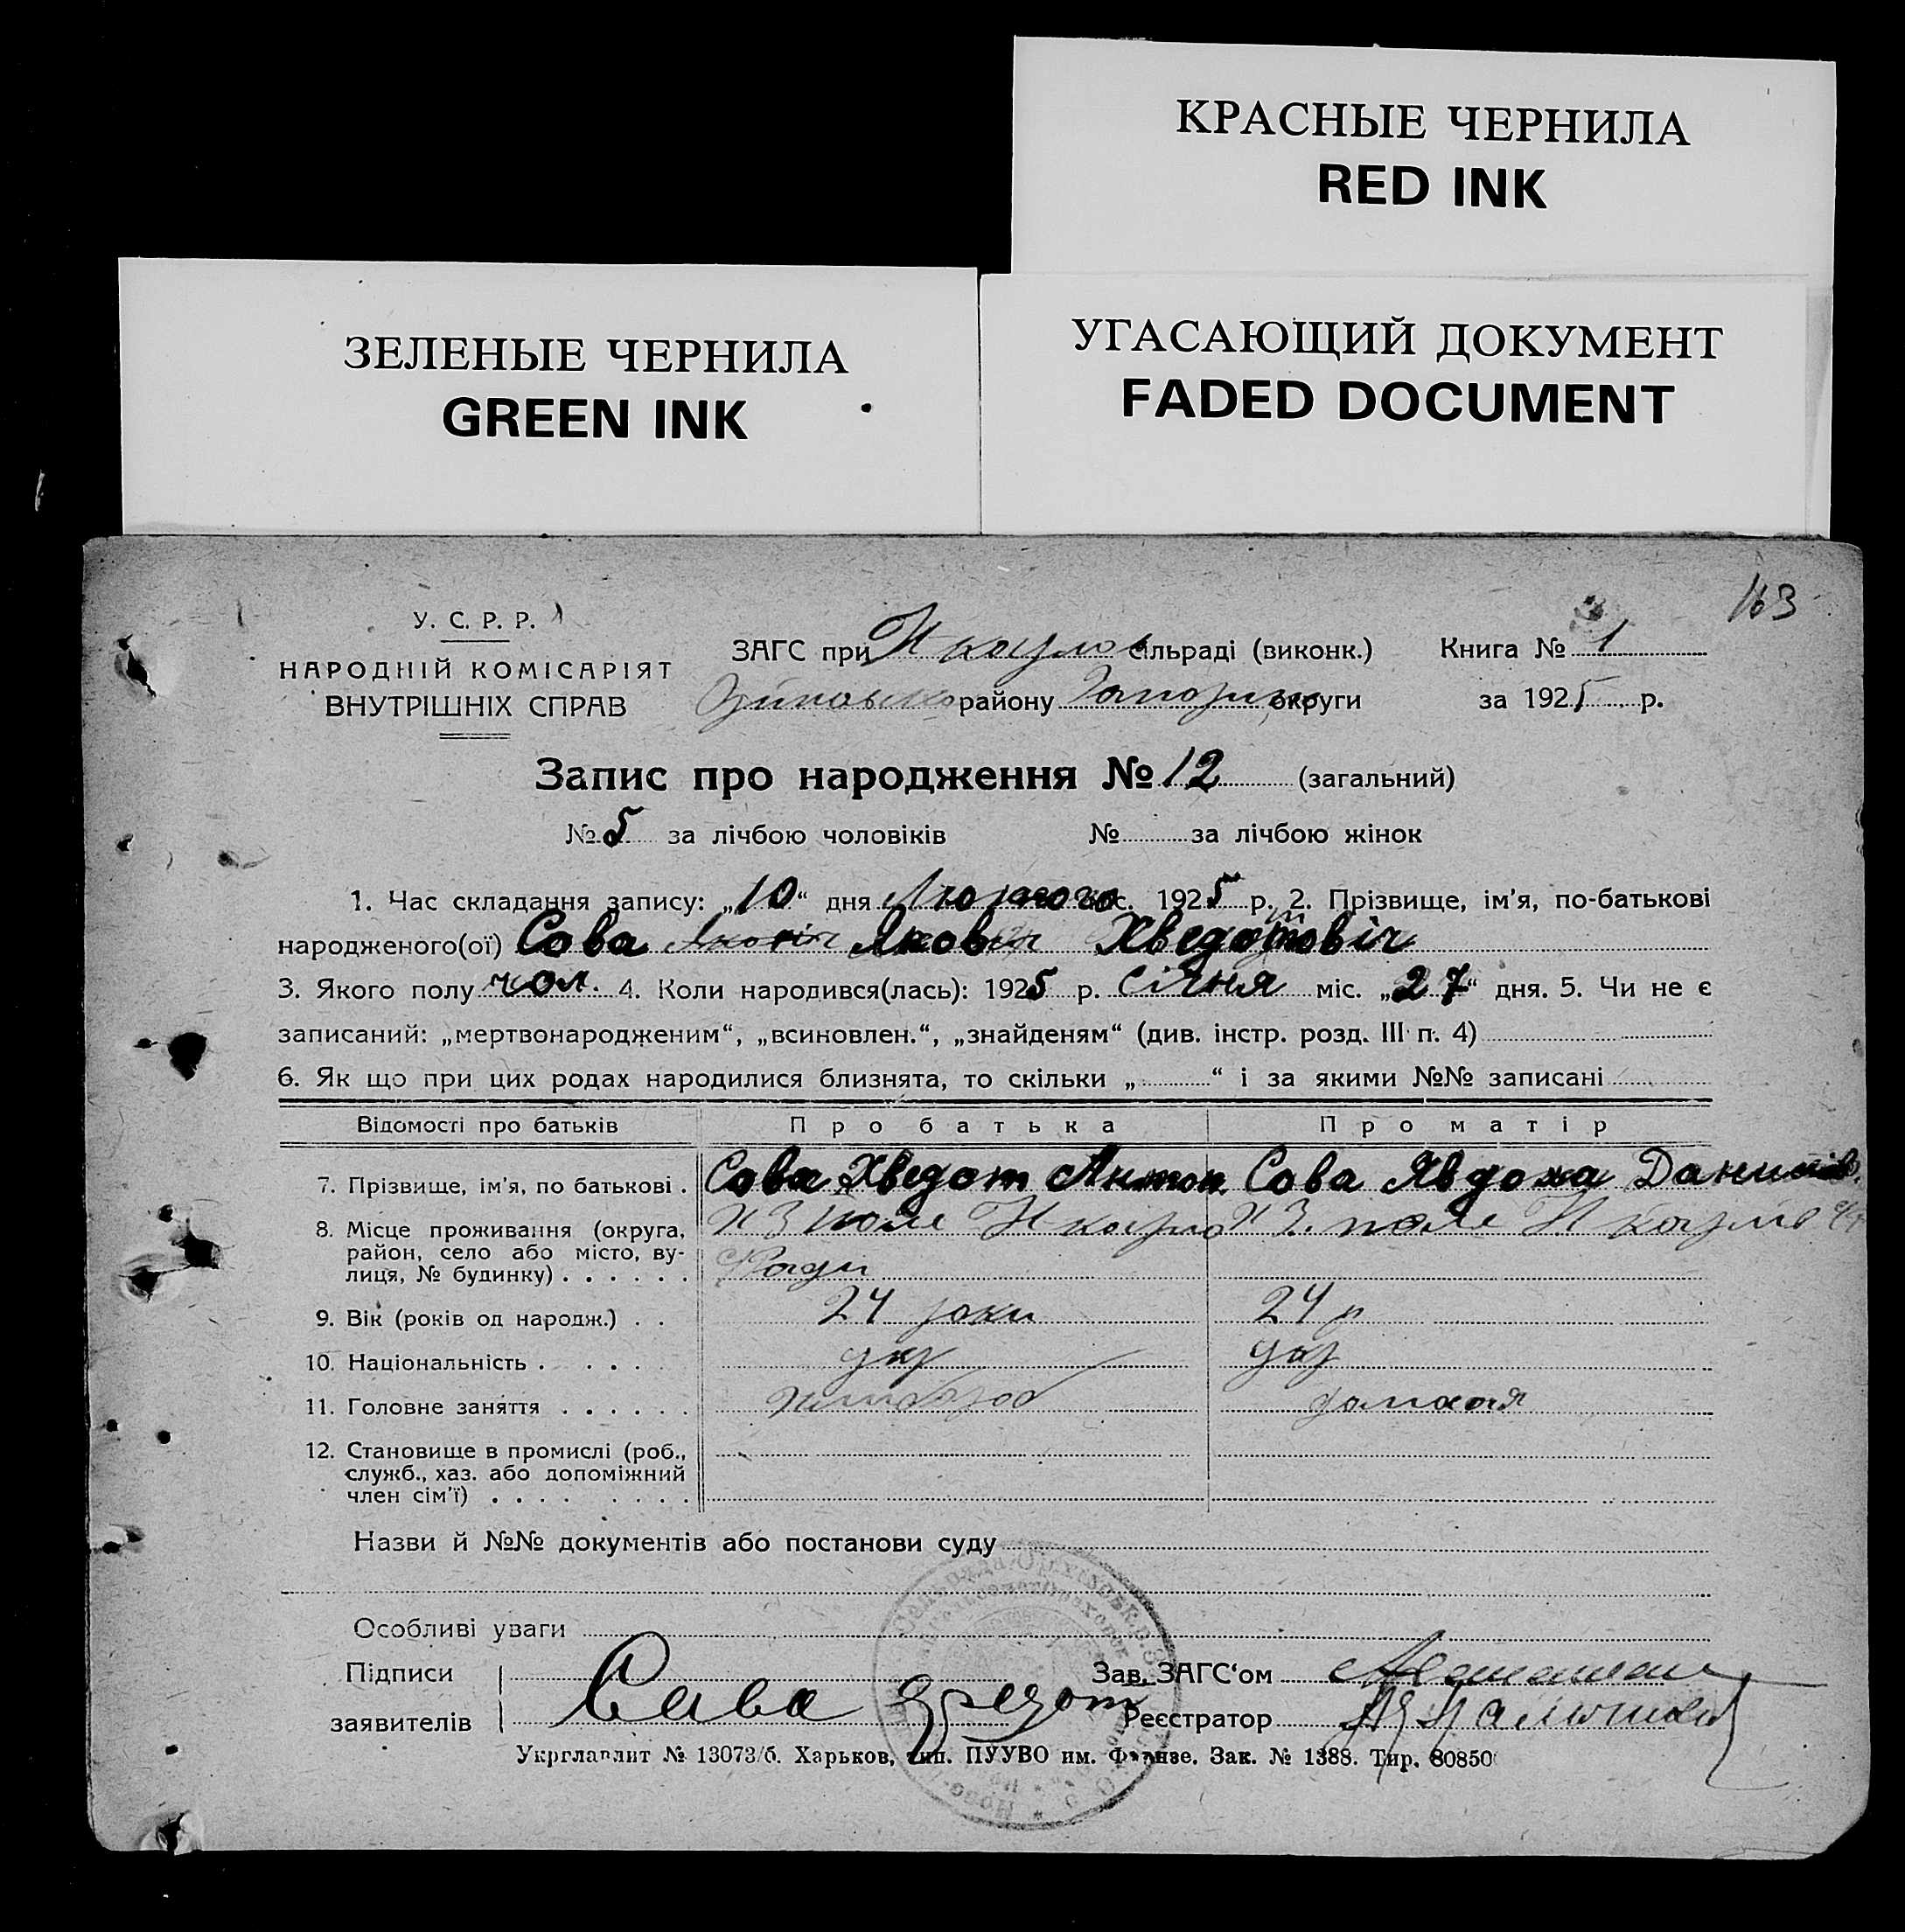 КРАСНЫЕ ЧЕРНИЛА
RED INK
ЗЕЛЕНЫЕ ЧЕРНИЛА
GREEN INK
УГАСАЮЩИЙ ДОКУМЕНТ
FADED DOCUMENT
163
У. С. Р. Р.
НАРОДНІЙ КОМІСАРІЯТ
ВНУТРІШНІХ СПРАВ
ЗАГС при сільраді (виконк.) Книга № 1
району округи за 1925 р.
Запис про народження № 12 (загальний)
№ 5 за лічбою чоловіків № за лічбою жінок
1. Час складання запису: „10“ дня Лютого міс. 1925 р. 2. Прізвище, ім'я, по-батькові
народженого(ої) Сова Яков Хведотовіч
3. Якого полу чол. 4. Коли народився(лась): 1925 р. Січня міс. „27“ дня. 5. Чи не є
записаний: „мертвонародженим“, „всиновлен.“, „знайденям“ (див. інстр. розд. III п. 4)
6. Як що при цих родах народилися близнята, то скільки „ “ і за якими №№ записані
Відомості про батьків Про батька Про матір
7. Прізвище, ім'я, по батькові . Сова Хведот Антон Сова Явдоха Данилів.
8. Місце проживання (округа, район, село або місто, вулиця, № будинку) . . . . . .
9. Вік (років од народж.) . . 24 роки 24 р
10. Національність . . . . . укр укр
11. Головне заняття . . . . . . хлібороб домхоз
12. Становище в промислі (роб., служб., хаз. або допоміжний член сім'ї) . . . . . . . .
Назви й №№ документів або постанови суду
Особливі уваги
Підписи заявителів Сава Хведот
Зав. ЗАГС‘ом
Реєстратор
Укрглавлит № 13073/б. Харьков, тип. ПУУВО им. Фрунзе. Зак. № 1388. Тир. 80850